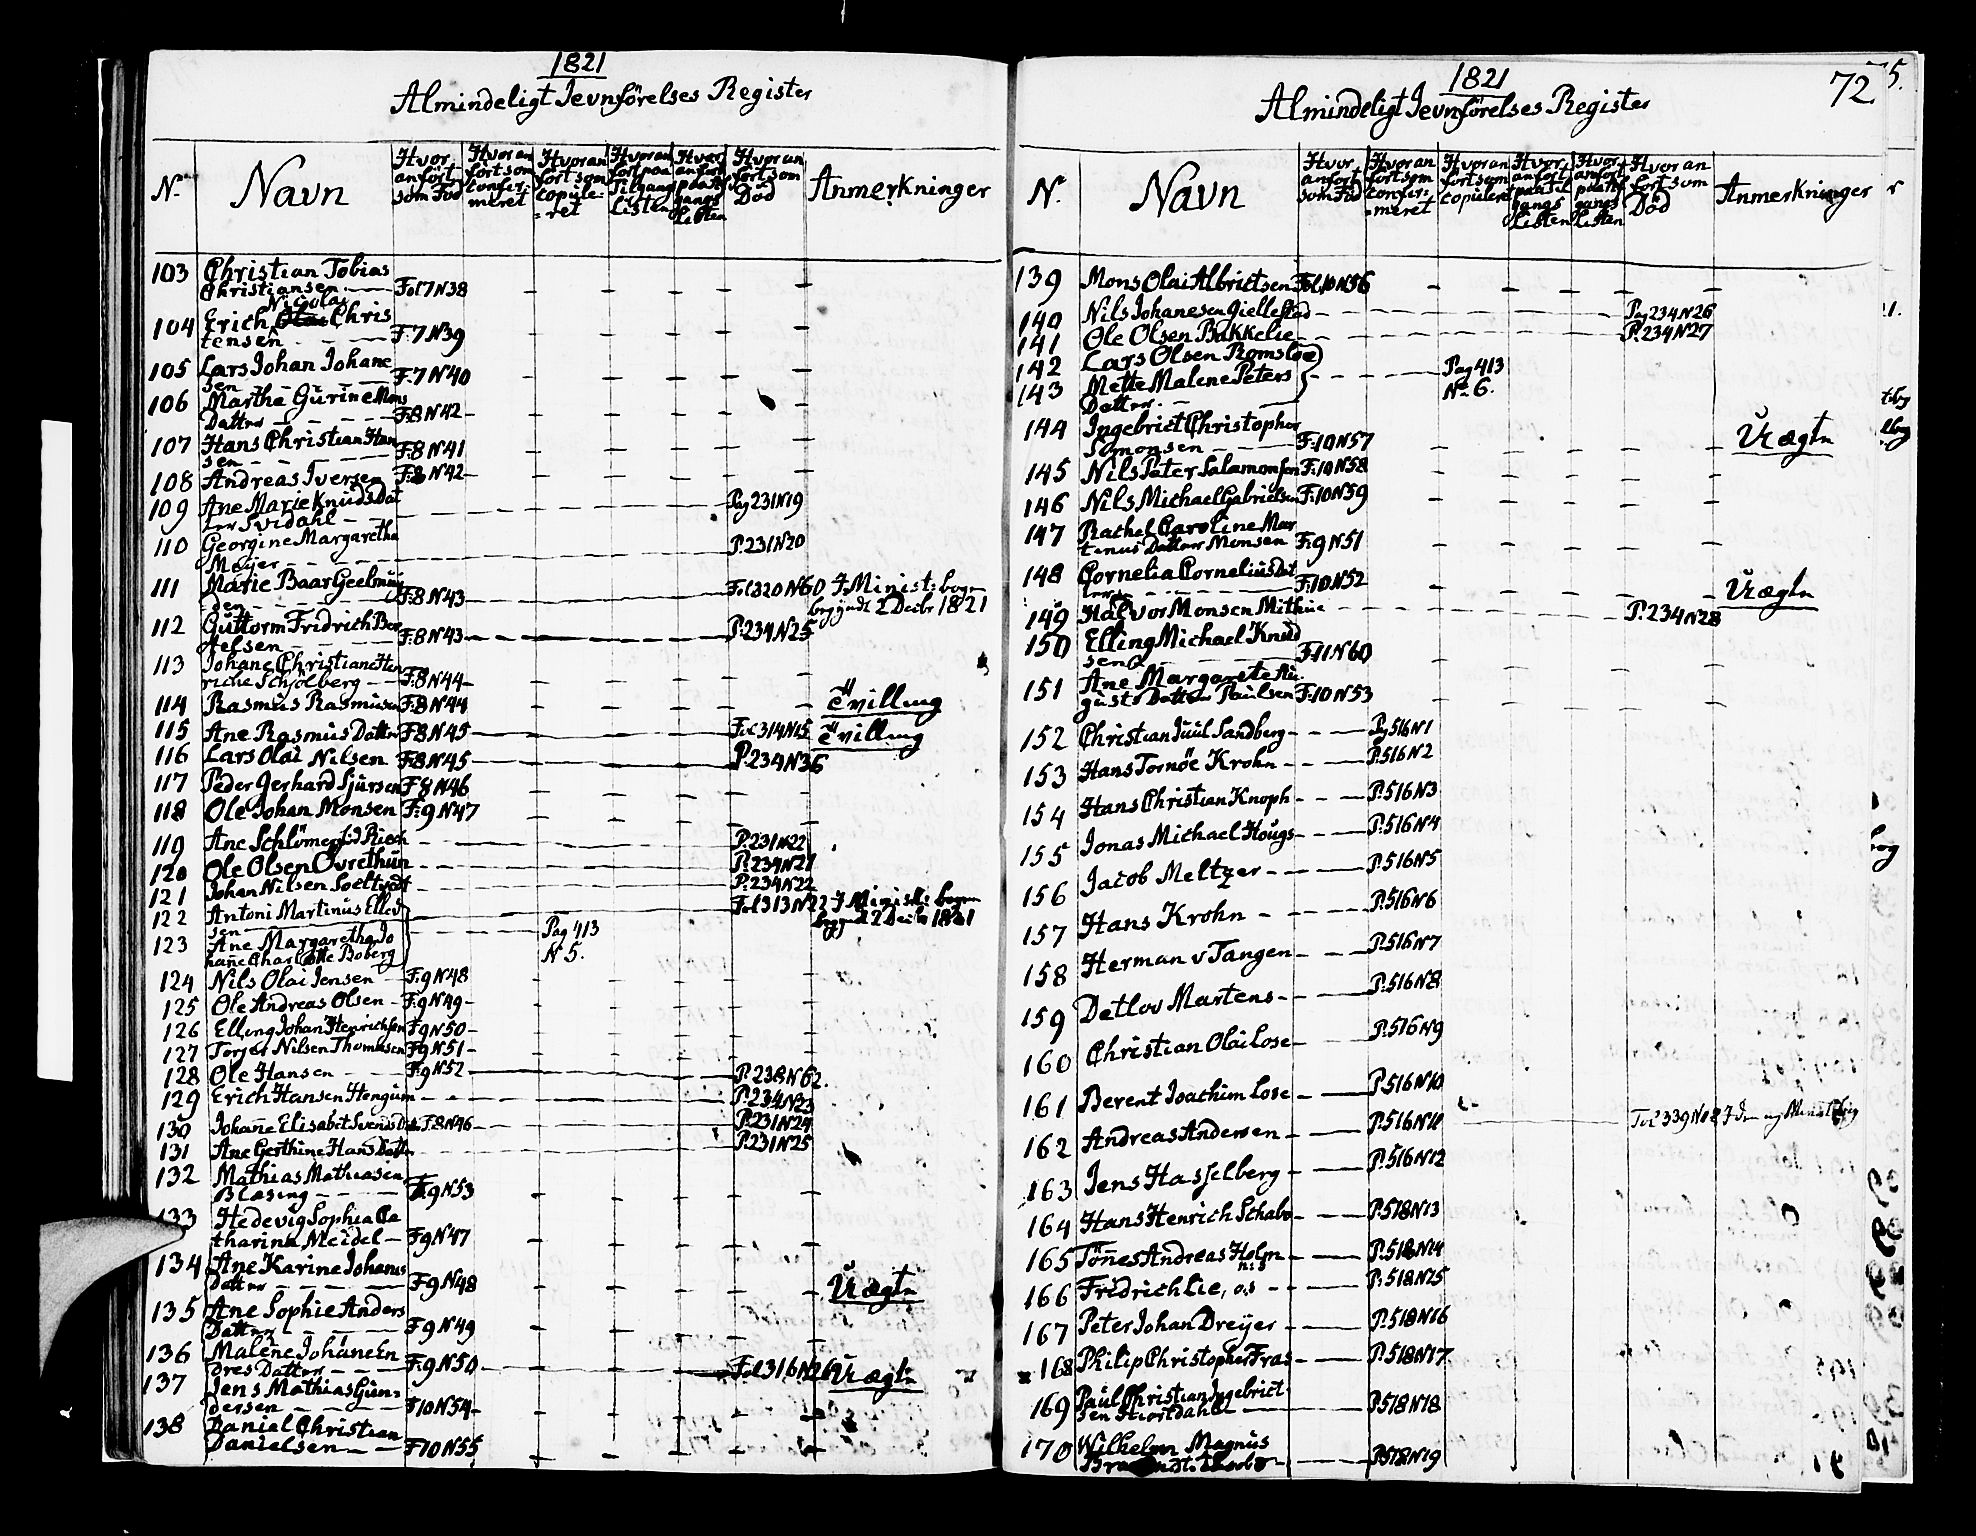 1821
Almindeligt Jevnförelses Register
No. Navn Hvor anfört som Föd Hvor an fört som confir- meret Hvor an fört som copule- ret Hvor an fört paa Tilgang Listen Hvor anfört paa Afgangs Listen Hvor an fört som Död Anmerkninger
103 Christian Tobias
Christiansen Fol 7 N 38
Nicolai
104 Erich Olai Chris
tensen F. 7 N 39
105 Lars Johan Johane
sen F. 7 N 40
106 Marthe Gurine Mons
Datter F. 8 N 42
107 Hans Christian Han
sen F. 8 N 41
108 Andreas Iversen F. 8 N 42
109 Ane Marie Knuds Dat
ter Svidahl Pag 231 N 19
110 Georgine Margaretha
Meyer P. 231 N 20
111 Marie Baar Geelmuy
den F. 8 N 43 Fol 320 N 60 I Minist: bogen
begyndt 2 Decbr 1821
112 Guttorm Fridrich Ber
telsen F. 8 N 43 P. 234 N 25
113 Johane Christiane Hen
riche Schjölberg F. 8 N 44
114 Rasmus Rasmusen F. 8 N 44 Tvilling
115 Ane Rasmus Datter F. 8 N 45 Fol 314 N 15 Tvilling
116 Lars Olai Nilsen F. 8 N 45 P. 234 N 36
117 Peder Gerhard Sjursen F. 8 N 46
118 Ole Johan Monsen F. 9 N 47
119 Ane Schlömer P. 231 N 22
120 Ole Olsen Övrethun P. 234 N 21
121 Johan Nilsen Soeltvedt P. 234 N 22
122 Antoni Martinus Elled
sen Fol 313 N 22 I Minist: bogen
begyndt 2 Decbr 1821
123 Ane Margaretha Jo
hane Charlotte Boberg Pag 413
N 5.
124 Nils Olai Jensen F. 9 N 48
125 Ole Andreas Olsen F. 9 N 49
126 Elling Johan Henrichsen F. 9 N 50
127 Torger Nilsen Thomasen F. 9 N 51
128 Ole Hansen F. 9 N 52 P. 238 N 62.
129 Erich Hansen Hengum P. 234 N 23
130 Johane Elisabet Svends Dat F. 8 N 46 P. 231 N 24
131 Ane Gerthine Hans Datter P. 231 N 25
132 Mathias Mathiasen
Blasing F. 9 N 53
133 Hedevig Sophia Ca
tharina Meidel F. 9 N 47
134 Ane Karine Johans
Datter F. 9 N 48 Uægte
135 Ane Sophie Anders
Datter F. 9 N 49
136 Malene Johane En
dres Datter F. 9 N 50 Fol 316 N 26 Uægte
137 Jens Mathias Gun-
dersen F 10 N 54
138 Daniel Christian
Danielsen F 10 N 55
1821
Almindeligt Jevnförelses Register 72.
No. Navn Hvor anfört som Föd Hvor an fört som confir- meret Hvor an fört som copuleret Hvor anfört paa til gangs Listen Hvor anfört paa Af gangs Listen Hvor an fört som Död Anmerkninger
139 Mons Olai Albrictsen Fol. 10 N 56
140 Nils Johanesen Giellestad Pag 234 N 26
141 Ole Olsen Bakkelie P. 234 N 27
142 Lars Olsen Romsloe
143 Mette Malene Peters
Datter Pag 413
No. 6.
144 Ingebrict Christopher
Somonsen F. 10 N 57 Uægte
145 Nils Peter Salamonsen F. 10 N 58
146 Nils Michael Gabrielsen F. 10 N 59
147 Rachel Caroline Mar
tenus Datter Monsen F. 9 N 51
148 Cornelia Cornelius Dat
ter F. 10 N 52 Uægte
149 Halvor Monsen Mithue P. 234 N 28
150 Elling Michael Knud
sen F. 11 N 60
151 Ane Margarete Au
gusts Datter Paulsen F. 10 N 53
152 Christian Juul Sandberg Pag 516 N 1
153 Hans Tornöe Krohn P. 516 N 2
154 Hans Christian Knoph P. 516 N 3
155 Jonas Michael Hougs P. 516 N 4
156 Jacob Meltzer P. 516 N 5
157 Hans Krohn P. 516 N 6
158 Herman v Tangen P. 516 N 7
159 Detlov Martens P. 516 N 8
160 Christian Olai Lose P. 516 N 9
161 Berent Joachim Lose P. 516 N 10
162 Andreas Andersen P. 516 N 11 Fol 339
163 Jens Hasselberg P. 516 N 12
164 Hans Henrich Schabo P. 518 N 13
165 Tönnes Andreas Holm P. 518 N 14
166 Fridrich Lie P. 518 N 15
167 Peter Johan Dreyer P. 518 N 16
168 Philip Christopher Fras P. 518 N 17
169 Paul Christian Ingebrict
sen Hiortdahl P. 518 N 18
170 Wilhelm Magnus
P. 518 N 19